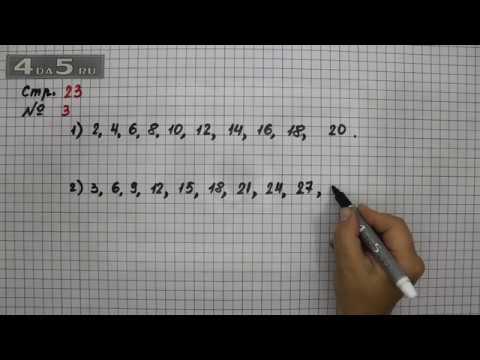 4DA5.RU
Стр. 23
№ 3
1) 2, 4, 6, 8, 10, 12, 14, 16, 18, 20.
2) 3, 6, 9, 12, 15, 18, 21, 24, 27,